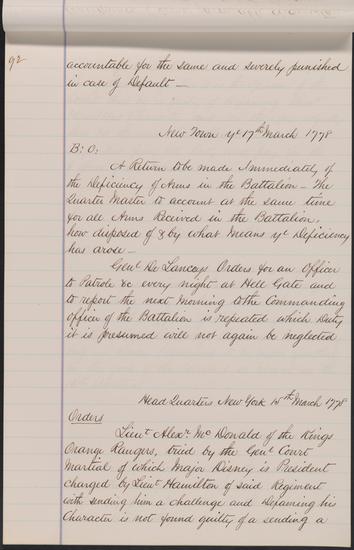 92
accountable for the same and severely punished
in case of Default —
New Town ye 17th March 1778
B: O:
A Return to be made Immediately of
the Deficiency of Arms in the Battalion — The
Quarter Master to account at the same time
for all Arms Received in the Battalion,
how disposed of & by what Means ye Deficiency
has arose —
Genl De Lanceys Orders for an Officer
to Patrole &c every night at Hell Gate and
to report the next Morning to the Commanding
officer of the Battalion is repeated which Duty
it is presumed will not again be neglected
Head Quarters New York 15th March 1778
Orders
Lieut Alexr Mc Donald of the Kings
Orange Rangers, tried by the Genl Court
Martial of which Major Disney is President
charged by Lieut Hamilton of said Regiment
with sending him a challenge and Defaming his
Character is not found guilty of sending a